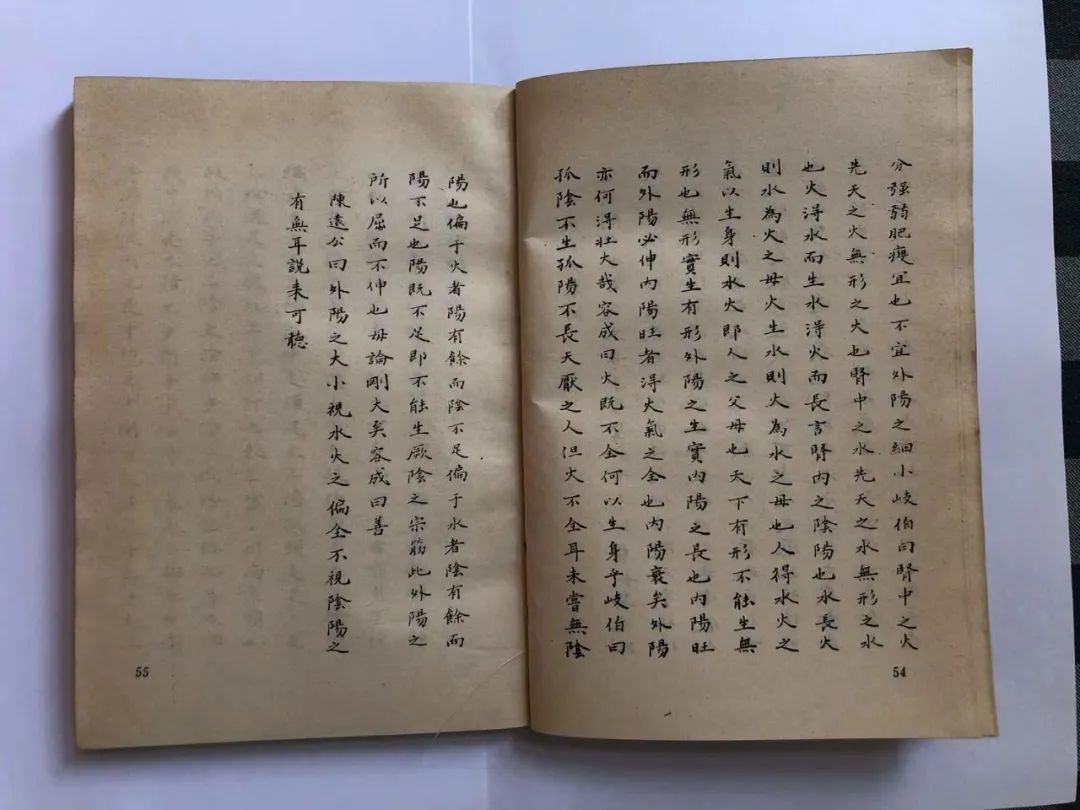 分强弱肥瘦宜也不宜外陽之細小岐伯曰腎中之火
先天之火無形之火也腎中之水先天之水無形之水
也火得水而生水得火而長言腎内之陰陽也水長火
則水為火之母火生水則火為水之母也人得水火之
氣以生身則水火即人之父母也天下有形不能生無
形也無形實生有形外陽之生實内陽之長也内陽旺
而外陽必伸内陽旺者得火氣之全也内陽衰矣外陽
亦何得壯大哉容成曰火既不全何以生身乎岐伯曰
孤陰不生孤陽不長天厭之人但火不全耳未嘗無陰
54
陽也偏于火者陽有餘而陰不足偏于水者陰有餘而
陽不足也陽既不足即不能生厥陰之宗筋此外陽之
所以屈而不伸也毋論剛大矣容成曰善
陳遠公曰外陽之大小視水火之偏全不視陰陽之
有無耳說来可聽
55